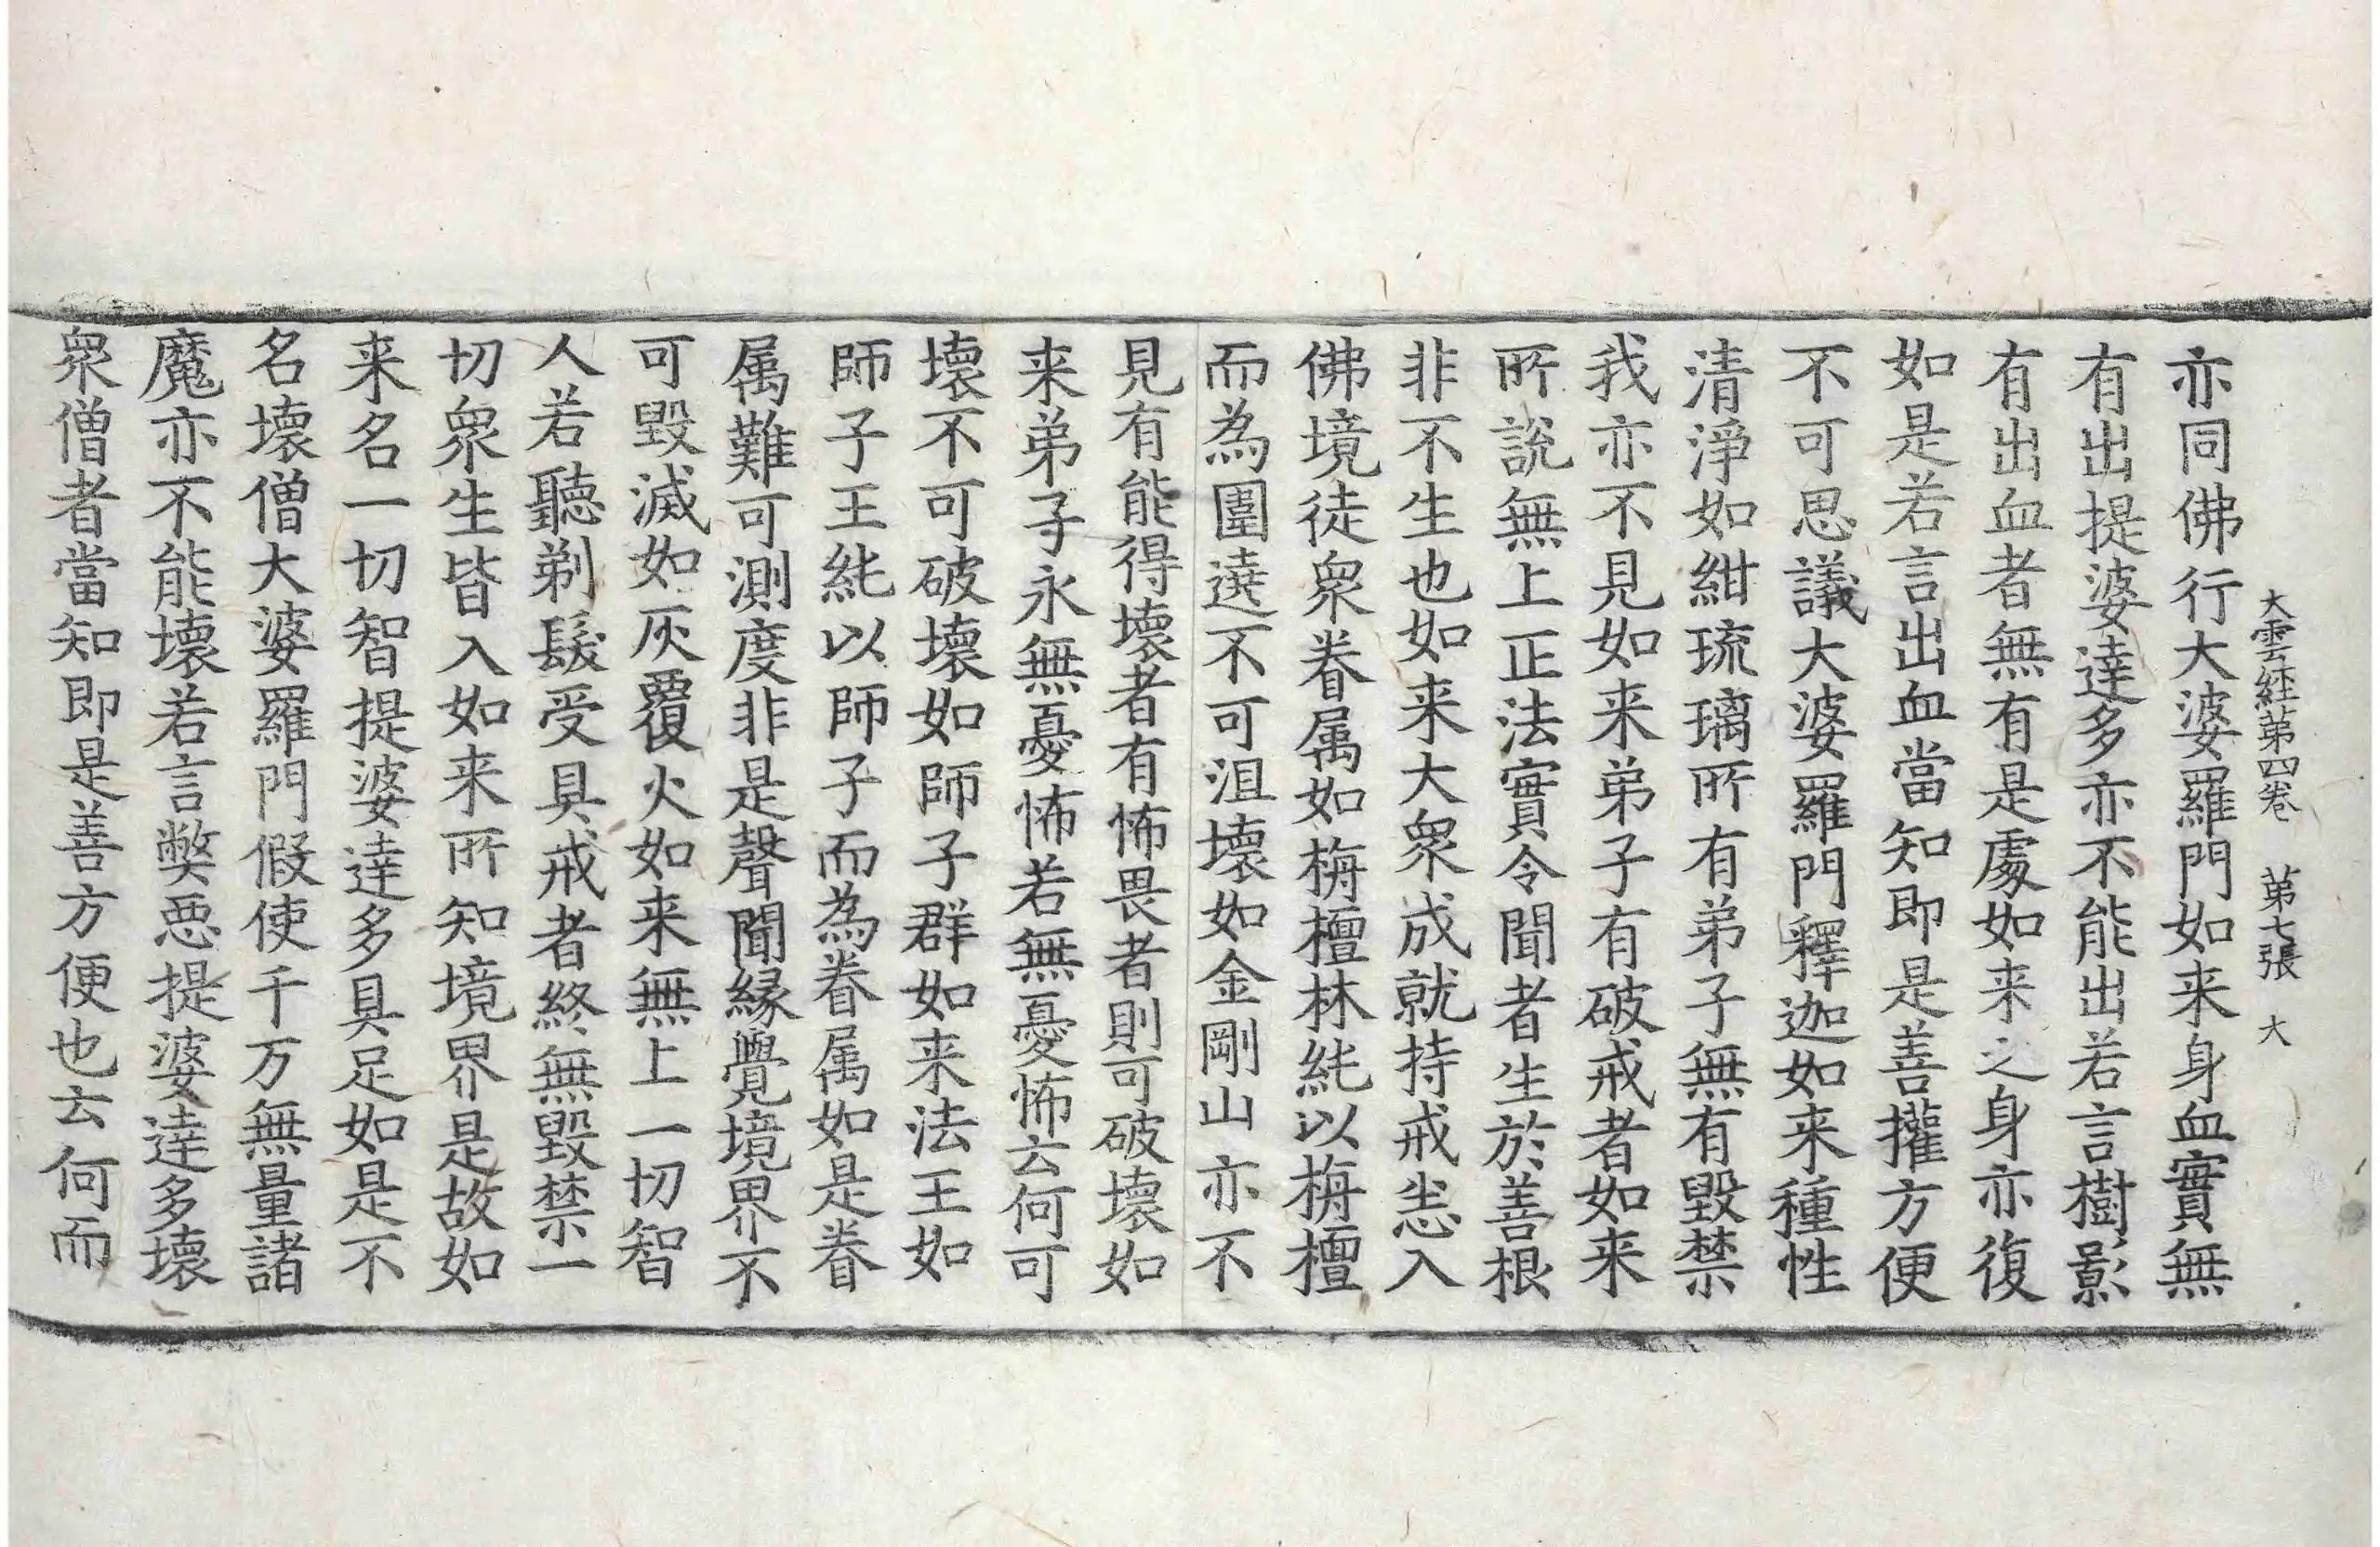 大雲経第四卷　第七張　大
亦同佛行大婆羅門如来身血實無
有出提婆達多亦不能出若言樹影
有出血者無有是處如来之身亦復
如是若言出血當知即是善權方便
不可思議大婆羅門釋迦如来種性
清淨如紺琉璃所有弟子無有毀禁
我亦不見如来弟子有破戒者如来
所說無上正法實令聞者生於善根
非不生也如来大衆成就持戒恙入
佛境徒衆眷属如栴檀林純以栴檀
而為圍遶不可沮壞如金剛山亦不
見有能得壞者有怖畏者則可破壞如
来弟子永無憂怖若無憂怖云何可
壞不可破壞如師子群如来法王如
師子王純以師子而為眷属如是眷
属難可測度非是聲聞緣覺境界不
可毀滅如灰覆火如来無上一切智
人若聽剃髮受具戒者終無毀禁一
切衆生皆入如来所知境界是故如
来名一切智提婆達多具足如是不
名壞僧大婆羅門假使千万無量諸
魔亦不能壞若言弊惡提婆達多壞
衆僧者當知即是善方便也云何而